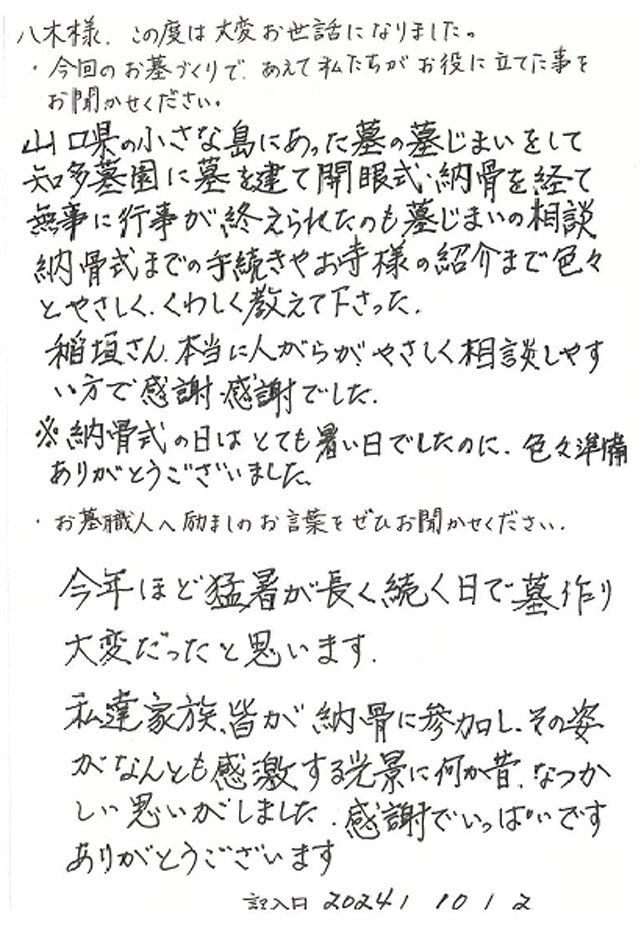 八木様、この度は大変お世話になりました。
・今回のお墓づくりで、あえて私たちがお役に立てた事を
お聞かせください。
山口県の小さな島にあった墓の墓じまいをして
知多墓園に墓を建て開眼式・納骨を経て
無事に行事が終えられたのも墓じまいの相談
納骨式までの手続きやお寺様の紹介まで色々
とやさしく、くわしく教えて下さった。
稲垣さん、本当に人がらが、やさしく相談しやす
い方で感謝・感謝でした。
※納骨式の日はとても暑い日でしたのに、色々準備
ありがとうございました。
・お墓職人へ励ましのお言葉をぜひお聞かせください。
今年ほど猛暑が長く続く日で墓作り
大変だったと思います。
私達家族、皆が納骨に参加し、その姿
がなんとも感激する光景に何か昔、なつか
しい思いがしました。感謝でいっぱいです
ありがとうございます
記入日 2024 / 10 / 2